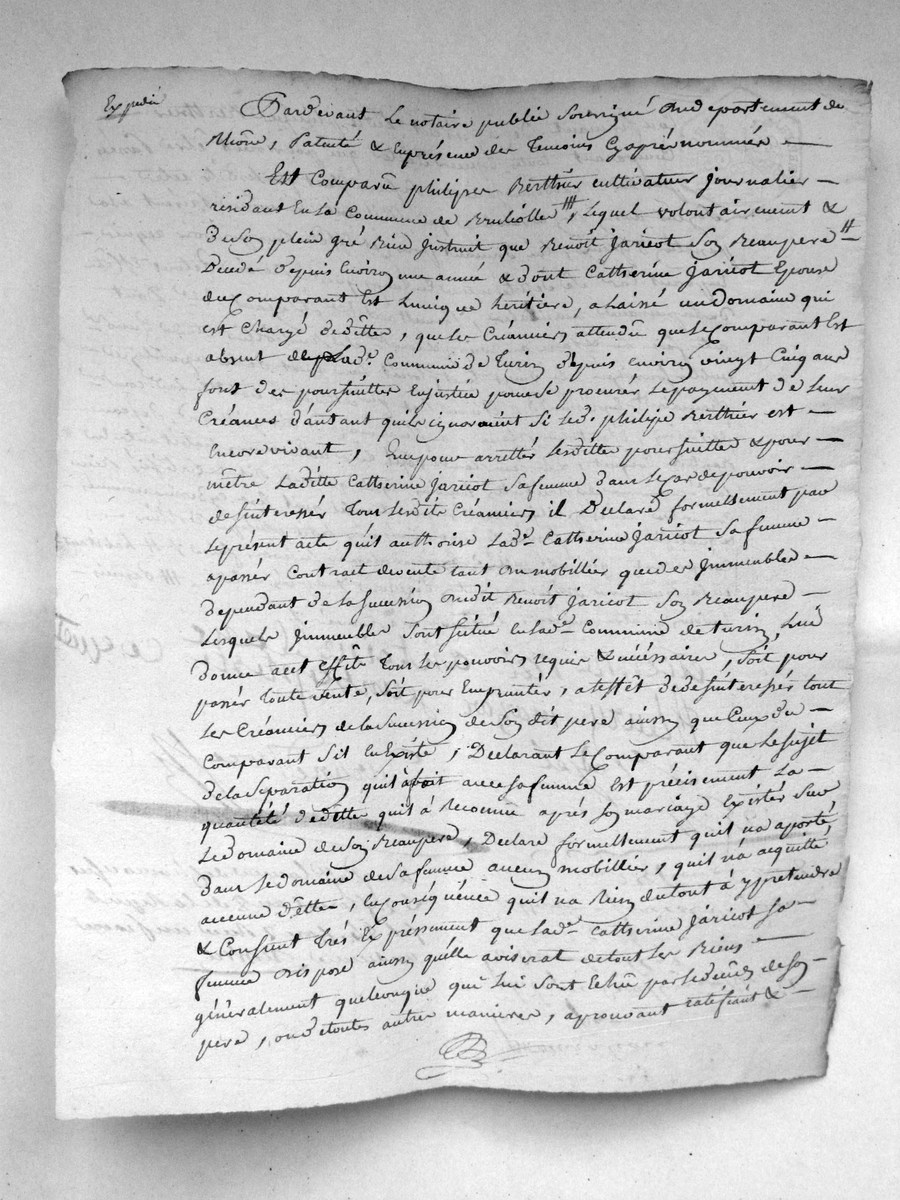 Expédié
Pardevant Le notaire public Soussigné Au departement de
Rhône, Patenté & Enprésence des Temoins Cyaprés nommés —
Est Comparû philippe Berthier cultivateur journalier —
résidant En La Commune de Brulliolle, Lequel volontairement &
de Son plein gré Bien justruit que Benoît jaricot Son Beaupere
Décédé depuis Environ une année & dont Catherine jaricot Epouse
du Comparant Est Lunique héritiere, a Laissé un domaine qui
est Chargé de dette, que les Créanciers attendû que Le Comparant Est
absent de Lad.e Commune de Turin depuis environ vingt Cinq ans
font des poursuittes En justice pour se procurér Le payement de Leur
Créances d'autant quils ignoraient Si Led. philipe Berthier est —
Encore vivant, En pour arrettér Lesditte poursuitte & pour —
mêtre Laditte Catherine jaricot Sa femme dans Le Cas de pouvoir —
desinteressér Tous Lesdits Créanciers il Declare formellement par
Le présent acte quil authorise Lad.e Catherine jaricot Sa femme —
a passér Contract de vente tant du mobillier que des jmmeubles —
dependant de La Succession dudit Benoît jaricot Son Beaupere —
Lesquels jmmeubles Sont Situé en Lad.e Commune de turin, Lui
donne a cet Effêt Tous Les pouvoirs requis & nécéssaires, Soit pour
passér Toute vente, Soit pour Empruntér, a L'effêt de desintéressér tout
Les Créanciers de La Succession de Son dit pere ainsy que Ceux du —
Comparant S'il En Existe, Declarant Le Comparant que Le Sujet
de La Séparation quil avoit avec sa femme Est précisement La —
quantité de dette quil á Reconnû aprés Son mariage Existér Sur
Le domaine de Son Beaupere, Déclare formellement quil na aporté
dans Le domaine de Sa femme aucun mobillier, quil ná acquitté
aucune dette, En Conséquence quil na Rien du tout á y prétendre
& Consent Trés Expréssement que Lad.e Catherine jaricot Sa —
femme dispose ainsy quelle aviserat de tout Les Biens —
généralement quelconque qui Lui Sont Echû par Le décés de Son —
pere, ou de toutes autres manieres, aprouvant ratifiant & —